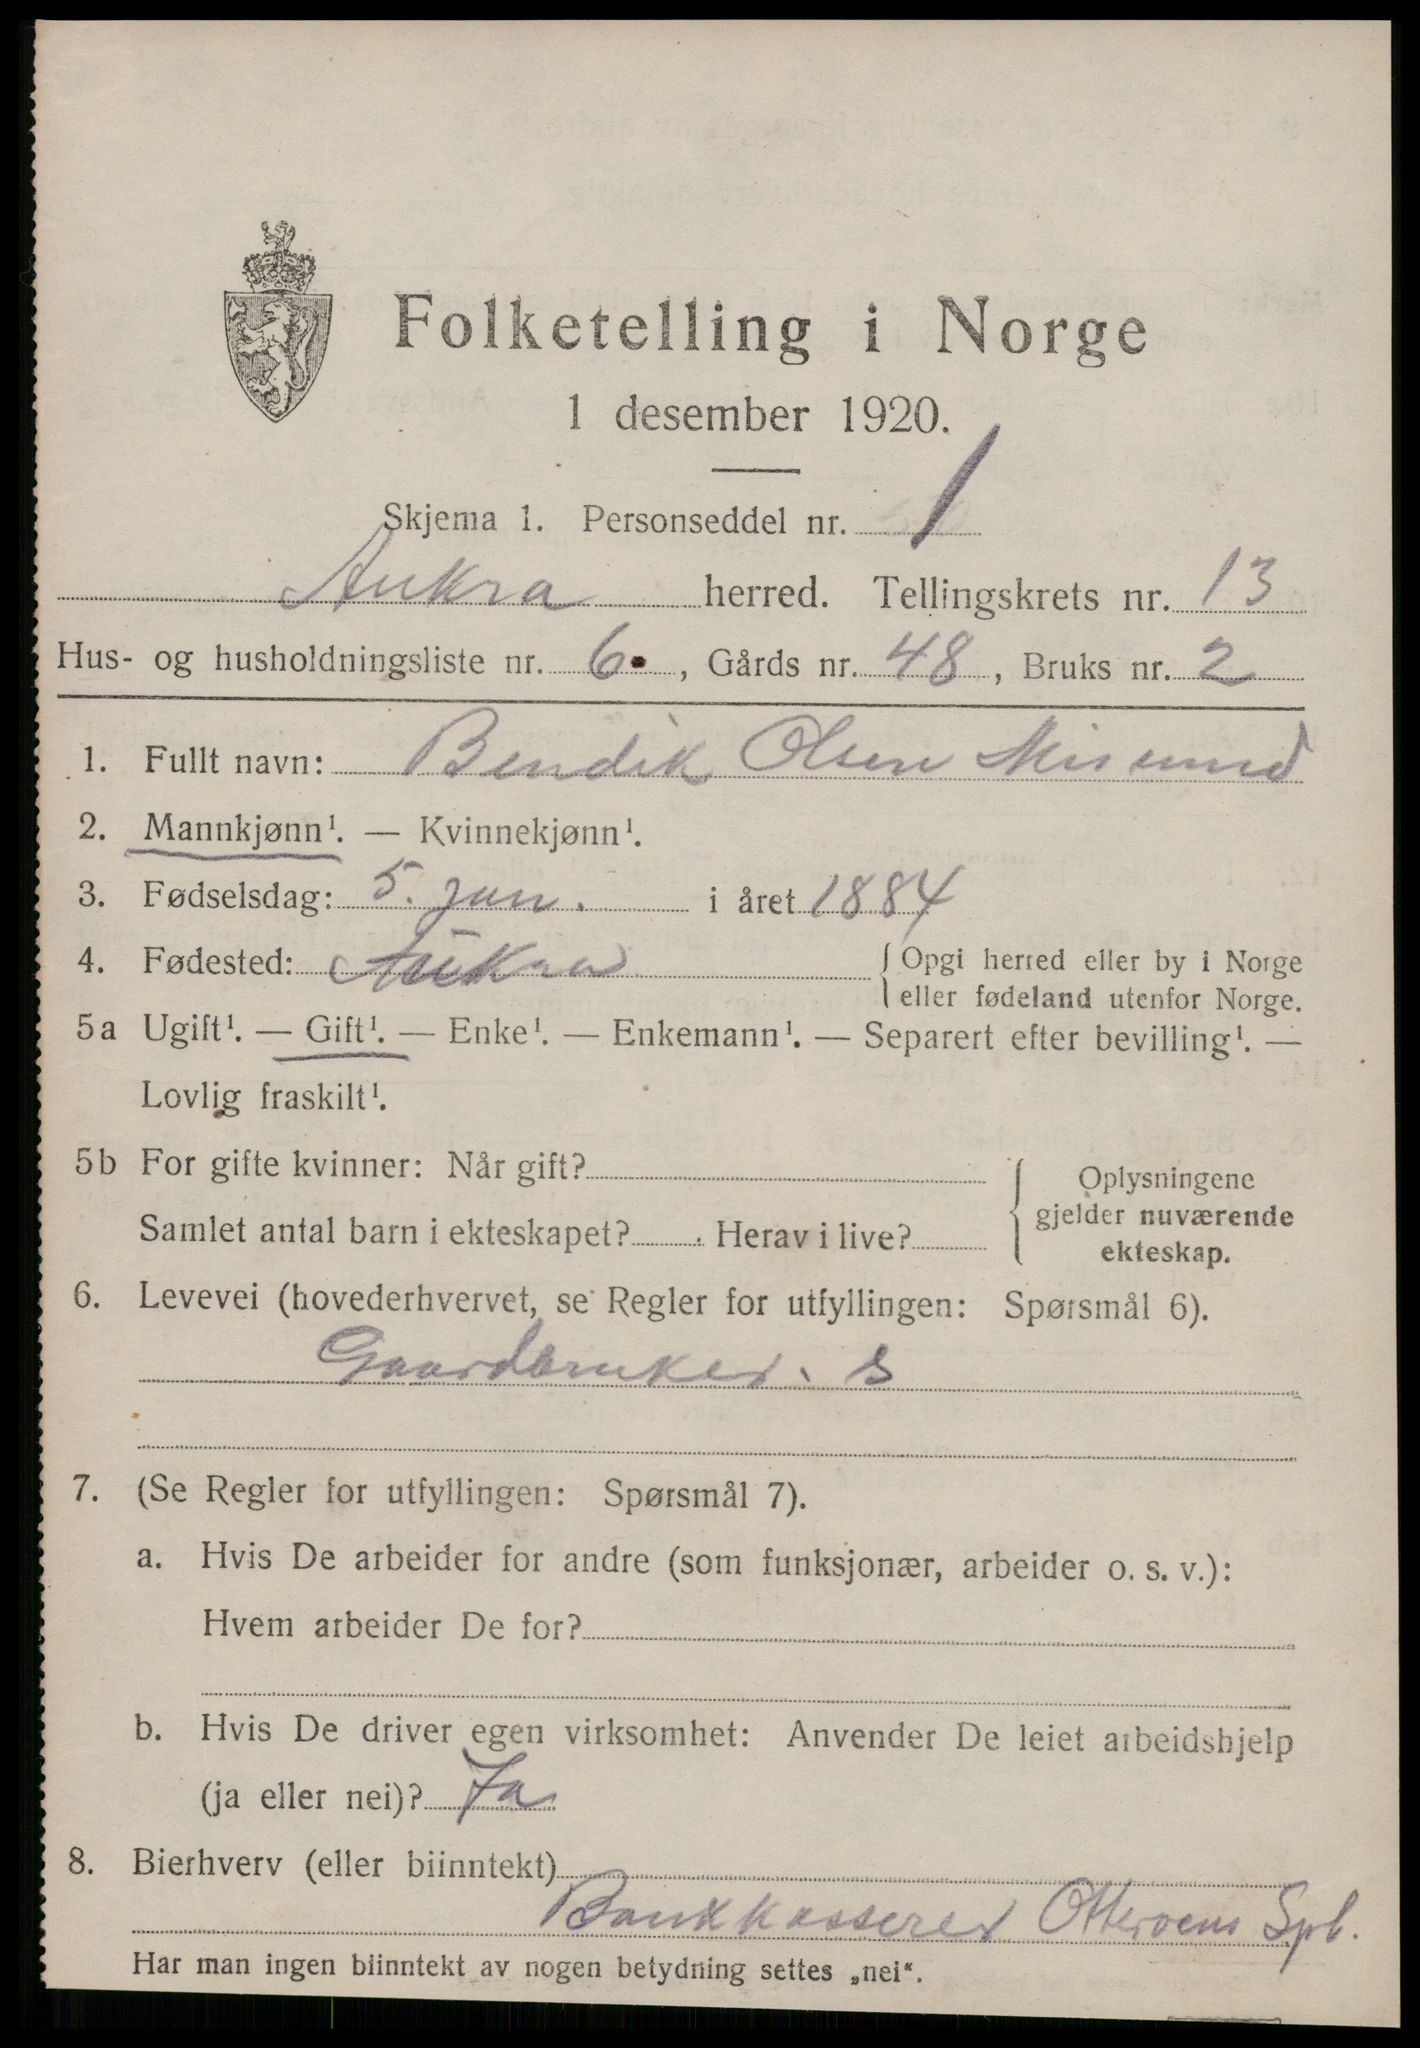 Folketelling i Norge
1 desember 1920.
Skjema 1. Personseddel nr. 1
Aukra herred. Tellingskrets nr. 13
Hus- og husholdningsliste nr. 6, Gårds nr. 48, Bruks nr. 2
1. Fullt navn: Bendik Olsen Misund
2. Mannkjønn¹. — Kvinnekjønn¹.
3. Fødselsdag: 5. jan. i året 1884
4. Fødested: Aukra { Opgi herred eller by i Norge
eller fødeland utenfor Norge.
5a Ugift¹. — Gift¹. — Enke¹. — Enkemann¹. — Separert efter bevilling¹. —
Lovlig fraskilt¹.
5b For gifte kvinner: Når gift?
Samlet antal barn i ekteskapet? Herav i live?
{ Oplysningene
gjelder nuværende
ekteskap.
6. Levevei (hovederhvervet, se Regler for utfyllingen: Spørsmål 6).
Gaardbruker. s
7. (Se Regler for utfyllingen: Spørsmål 7).
a. Hvis De arbeider for andre (som funksjonær, arbeider o. s. v.):
Hvem arbeider De for?
b. Hvis De driver egen virksomhet: Anvender De leiet arbeidshjelp
(ja eller nei)? Ja
8. Bierhverv (eller biinntekt)
Bankkasserer Otterøens Spb.
Har man ingen biinntekt av nogen betydning settes „nei“.